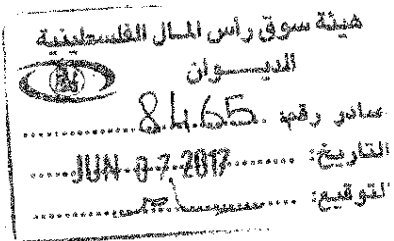 هيئة سوق رأس المال الفلسطينية
الديـــوان
صادر رقم: 8465
التاريخ: JUN-07-2017
التوقيع: